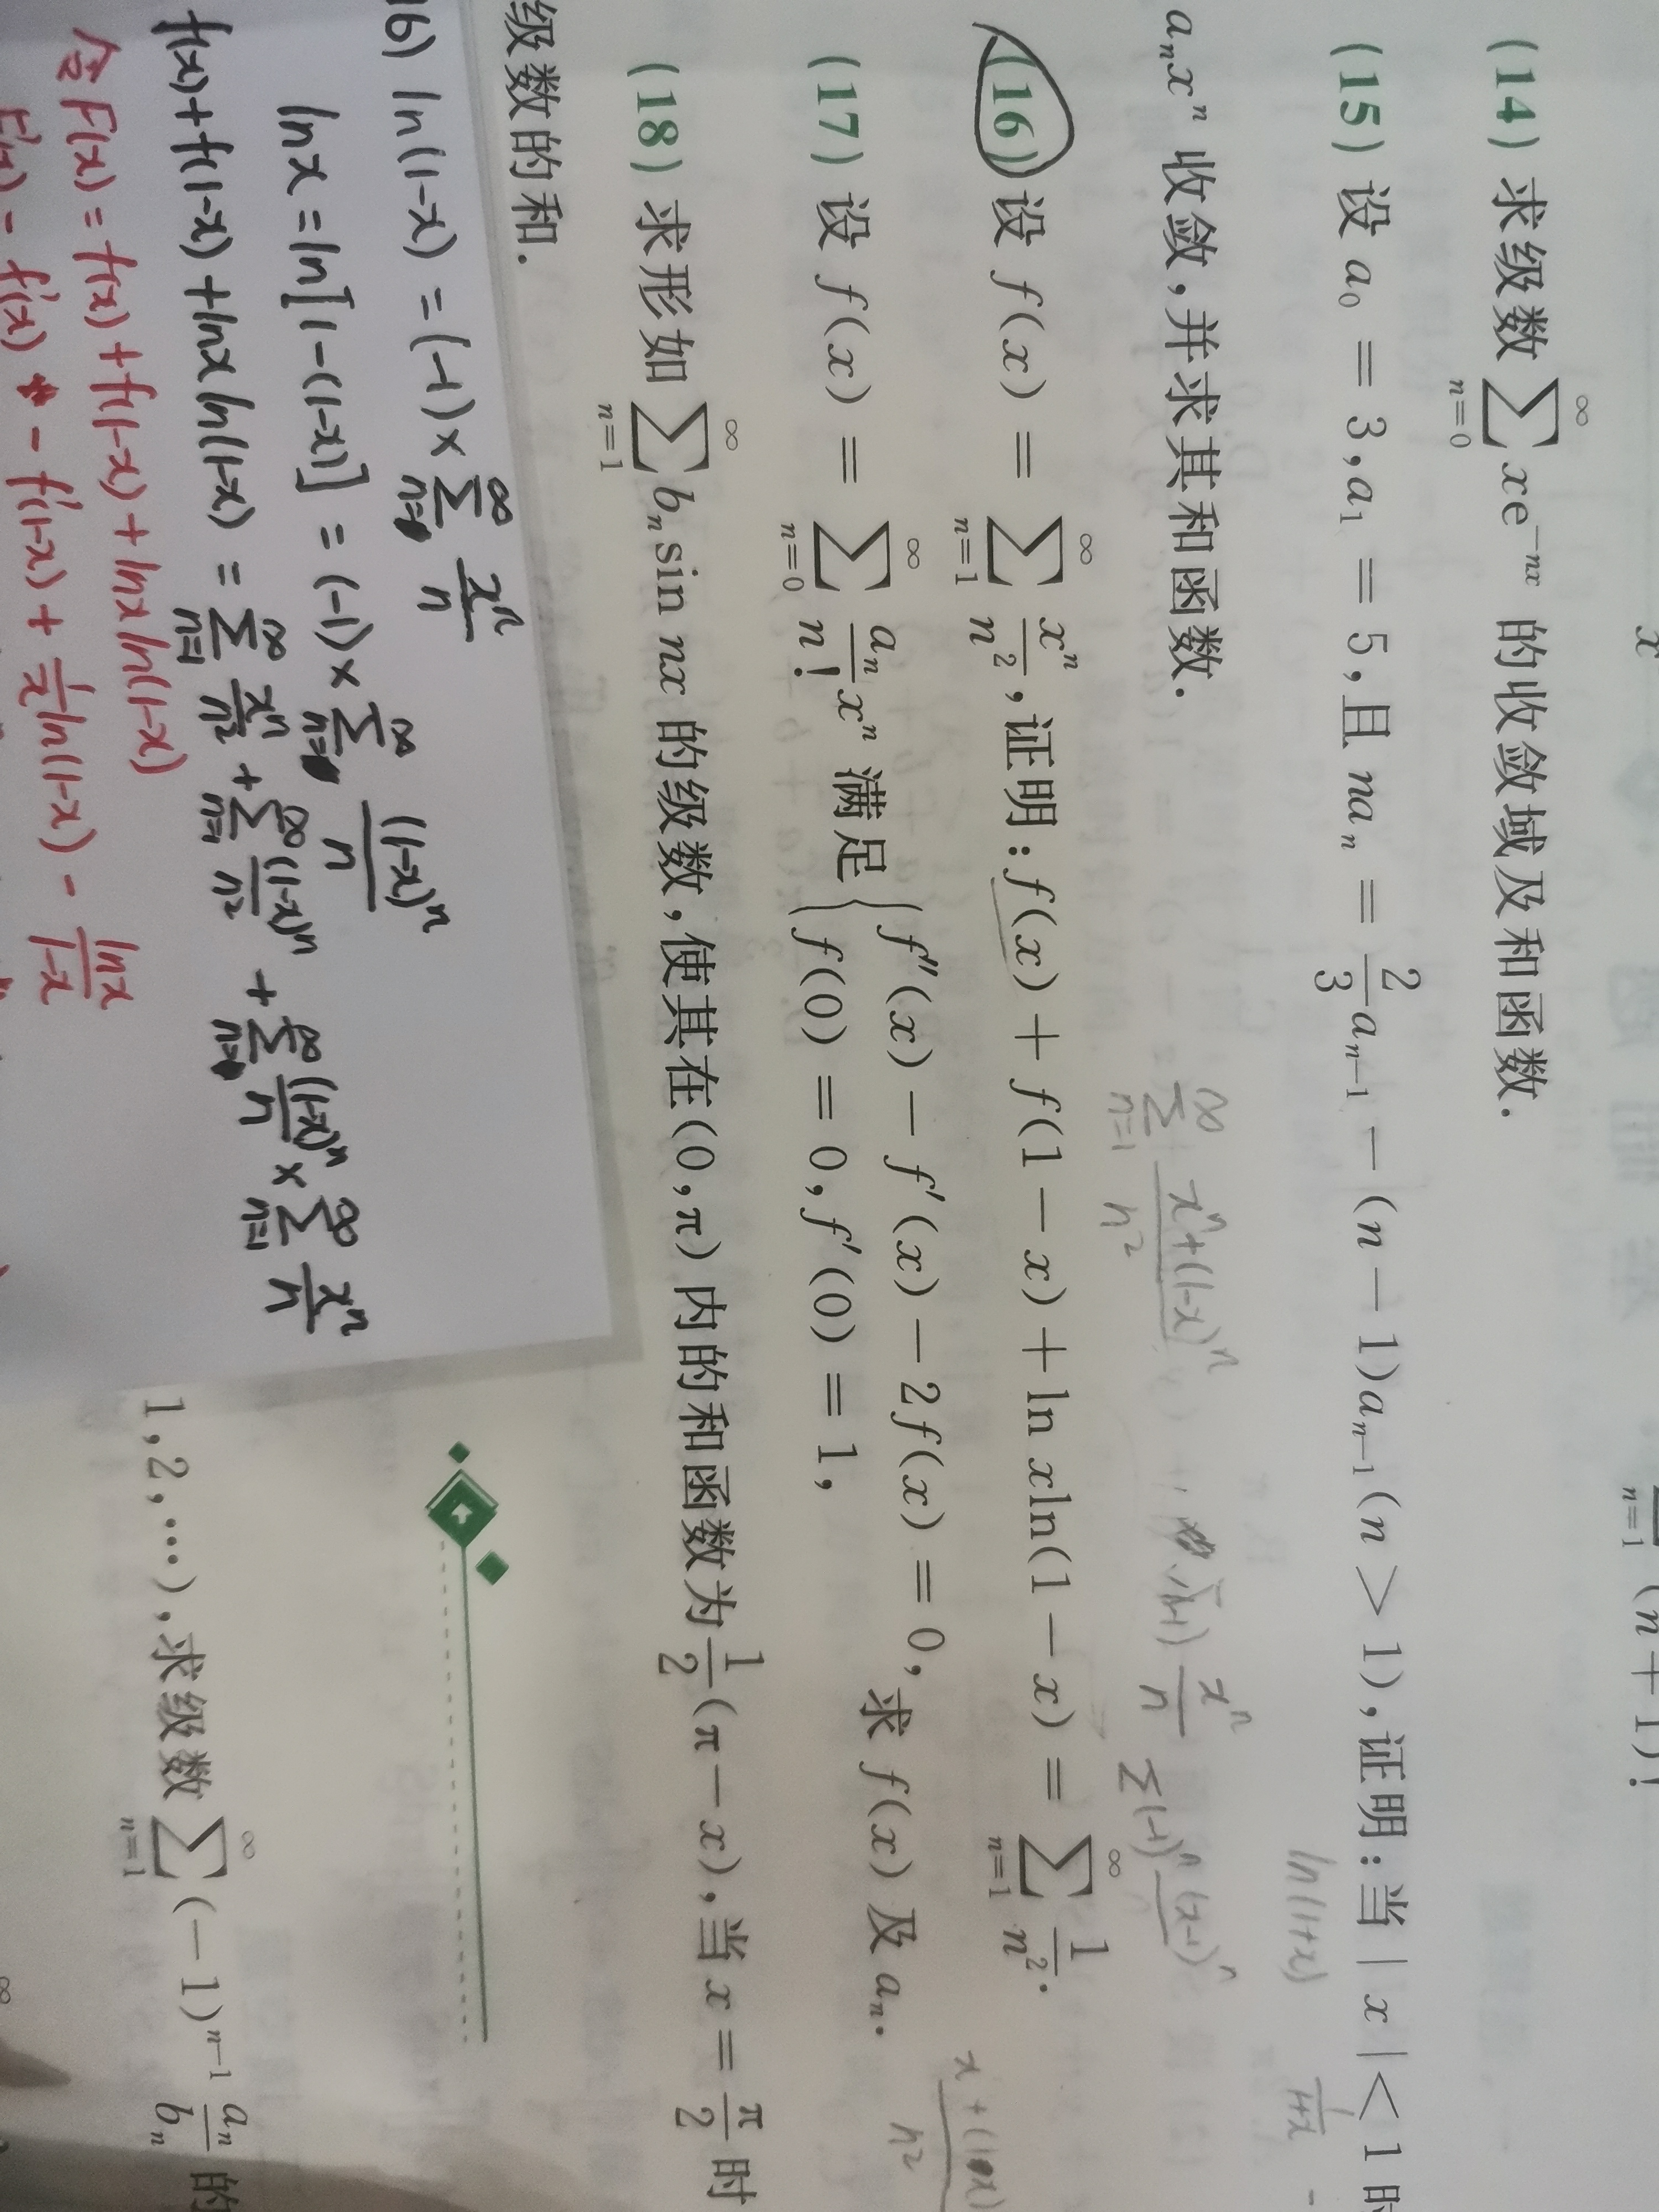 x
∑ n=1 (n+1)!
(14) 求级数 ∑_{n=0}^{∞} xe^{-nx} 的收敛域及和函数.
(15) 设 a_0 = 3, a_1 = 5, 且 na_n = \frac{2}{3}a_{n-1} - (n-1)a_{n-1} (n > 1), 证明: 当 |x| < 1 时
ln(1+x) \frac{1}{1+x} -
a_n x^n 收敛, 并求其和函数.
∑_{n=1}^{∞} \frac{x^n+(1-x)^n}{n^2} \frac{x^n}{n} ∑(-1)^n \frac{(x-1)^n}{}
(16) 设 f(x) = ∑_{n=1}^{∞} \frac{x^n}{n^2}, 证明: f(x) + f(1-x) + ln x ln(1-x) = ∑_{n=1}^{∞} \frac{1}{n^2}.
(17) 设 f(x) = ∑_{n=0}^{∞} \frac{a_n}{n!}x^n 满足 { f''(x) - f'(x) - 2f(x) = 0, f(0) = 0, f'(0) = 1, 求 f(x) 及 a_n.
(18) 求形如 ∑_{n=1}^{∞} b_n sin nx 的级数, 使其在(0,π)内的和函数为 \frac{1}{2}(π-x), 当 x = \frac{π}{2} 时
级数的和.
16) ln(1-x) = (-1)×∑_{n=1}^{∞} \frac{x^n}{n}
ln x = ln[1-(1-x)] = (-1)×∑_{n=1}^{∞} \frac{(1-x)^n}{n}
f(x)+f(1-x)+lnx ln(1-x) = ∑_{n=1}^{∞} \frac{x^n}{n^2} + ∑_{n=1}^{∞} \frac{(1-x)^n}{n^2} + ∑_{n=1}^{∞} \frac{(1-x)^n}{n} × ∑_{n=1}^{∞} \frac{x^n}{n}
令 F(x) = f(x)+f(1-x)+lnx ln(1-x)
F'(x) = f'(x) - f'(1-x) + \frac{1}{x}ln(1-x) - \frac{lnx}{1-x}
1,2,…), 求级数 ∑_{n=1}^{∞} (-1)^{n-1} \frac{a_n}{b_n} 的